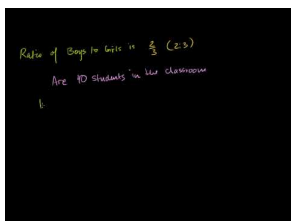 Ratio of Boys to Girls is 2/3 (2:3)
Are 40 students in the classroom